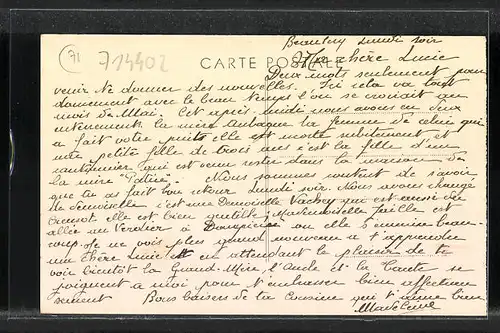 71
714402
CARTE POSTALE
Beaubery Lundi soir
Ma chère Lucie
Deux mots seulement pour
venir te donner des nouvelles. Ici cela va tout
doucement avec le beau temps l'on se croirait au
mois de Mai. Cet après midi nous avons eu deux
enterrements la mère la femme de celui qui
a fait votre puits elle est morte subitement et
une petite fille de trois ans c'est la fille d'un
cantonnier qui est venu rester dans la maison de
la mère Nous sommes content de savoir
que tu as fait bon retour Lundi soir. Nous avons changé
de Demoiselle c'est une Demoiselle Vachey qui est aussi du
Creusot elle est bien gentille; Mademoiselle
allée au Verdier à Dompierre ou elle s'ennuie beau-
coup. Je ne vois plus grand nouveau à t'apprendre
ma chère Lucie en attendant le plaisir de te
voir bientôt la Grand-Mère, l'Oncle et la Tante se
joignent à moi pour t'embrasser bien affectueu
sement Bons baisers de ta Cousine qui t'aime bien
Madeleine